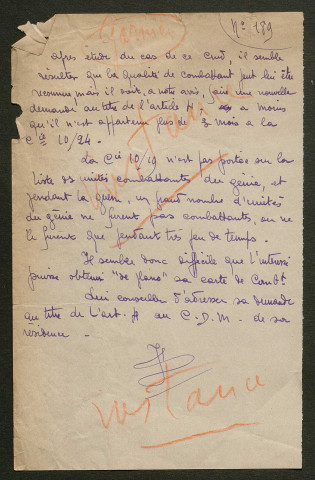 N° 189
après étude du cas de ce Cmd, il semble
résulter que la qualité de combattant peut lui être
reconnue mais il doit, à notre avis, faire une nouvelle
demande au titre de l'article 4, à moins
qu'il n'ait appartenu plus de 3 mois à la
Cie 10/24.
La Cie 10/19 n'est pas portée sur la
liste des unités combattantes du génie, et
pendant la guerre, un grand nombre d'unités
du génie ne furent pas combattantes, ou ne
le furent que pendant très peu de temps.
Il semble donc difficile que l'intéressé
puisse obtenir "de plano" sa carte de Combt.
Lui conseiller d'adresser sa demande
au titre de l'art. 4 au C.D.M. de sa
résidence.
instance